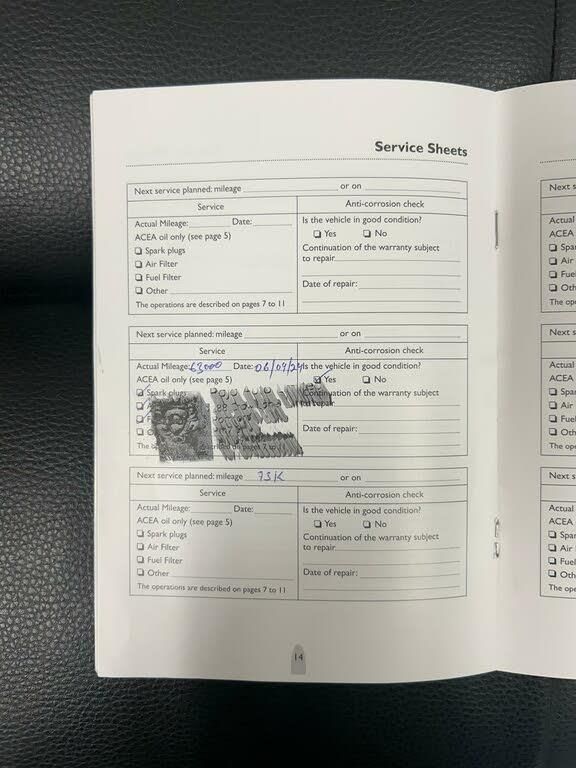 Service Sheets
Next service planned: mileage or on
Service Anti-corrosion check
Actual Mileage: Date: Is the vehicle in good condition?
ACEA oil only (see page 5) Yes No
Spark plugs Continuation of the warranty subject
Air Filter to repair
Fuel Filter Date of repair:
Other
The operations are described on pages 7 to 11
Next service planned: mileage or on
Service Anti-corrosion check
Actual Mileage: 63000 Date: Is the vehicle in good condition?
ACEA oil only (see page 5) Yes No
Spark plugs of the warranty subject
repair
Date of repair:
pages 7 to 11
Next service planned: mileage 73K or on
Service Anti-corrosion check
Actual Mileage: Date: Is the vehicle in good condition?
ACEA oil only (see page 5) Yes No
Spark plugs Continuation of the warranty subject
Air Filter to repair
Fuel Filter Date of repair:
Other
The operations are described on pages 7 to 11
14
Next s
Actual
ACEA
Spa
Air
Fue
Oth
The op
Next s
Actual
ACEA
Spa
Air
Fue
Oth
The op
Next s
Actual
ACEA
Spar
Air
Fuel
Oth
The op